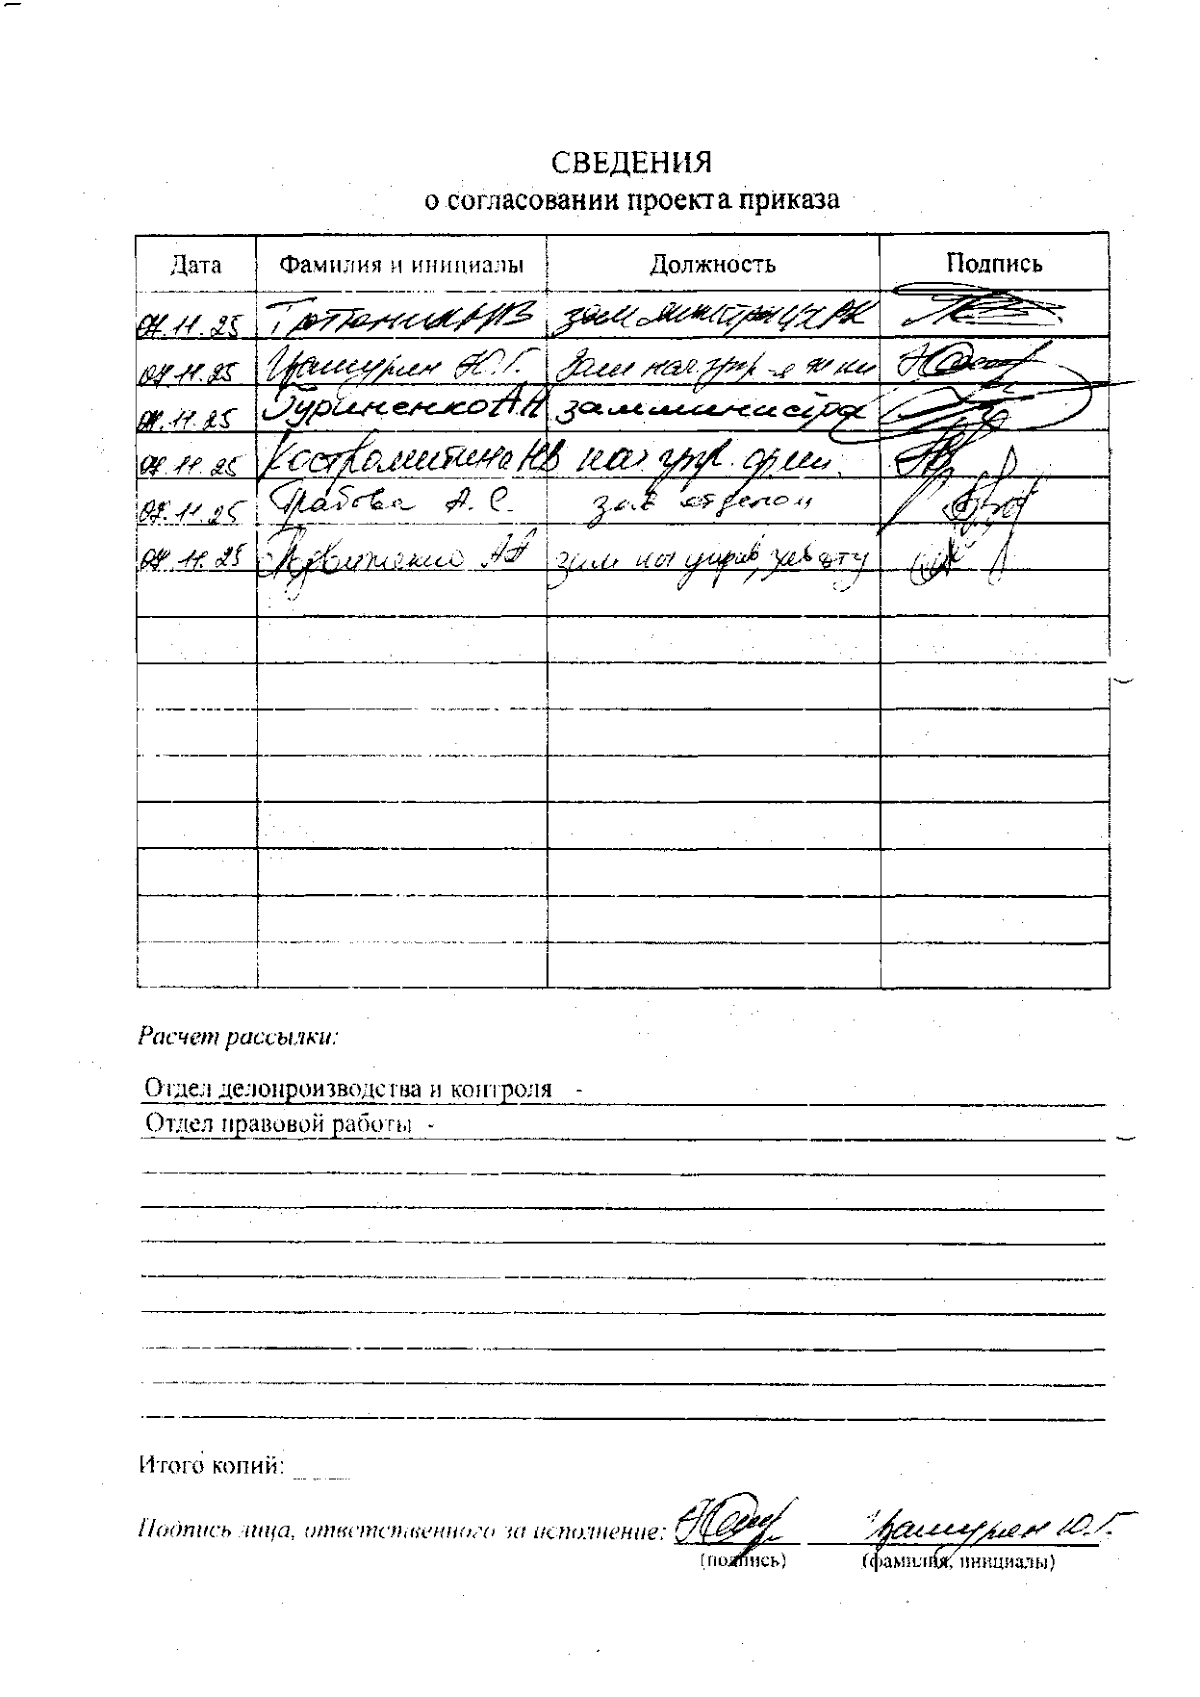 СВЕДЕНИЯ
о согласовании проекта приказа
Дата Фамилия и инициалы Должность Подпись
07.11.25 зам
07.11.25 Ю.Г. Зам нач упр-я
07.11.25 Гуриненко А.Н замминистра
07.11.25 Костромитина НВ нач упр.
07.11.25 Грабова А.С. зав отделом
07.11.25 зам нач управ, зав отд
Расчет рассылки:
Отдел делопроизводства и контроля -
Отдел правовой работы -
Итого копий:
Подпись лица, ответственного за исполнение: Ю.Г.
(подпись) (фамилия, инициалы)